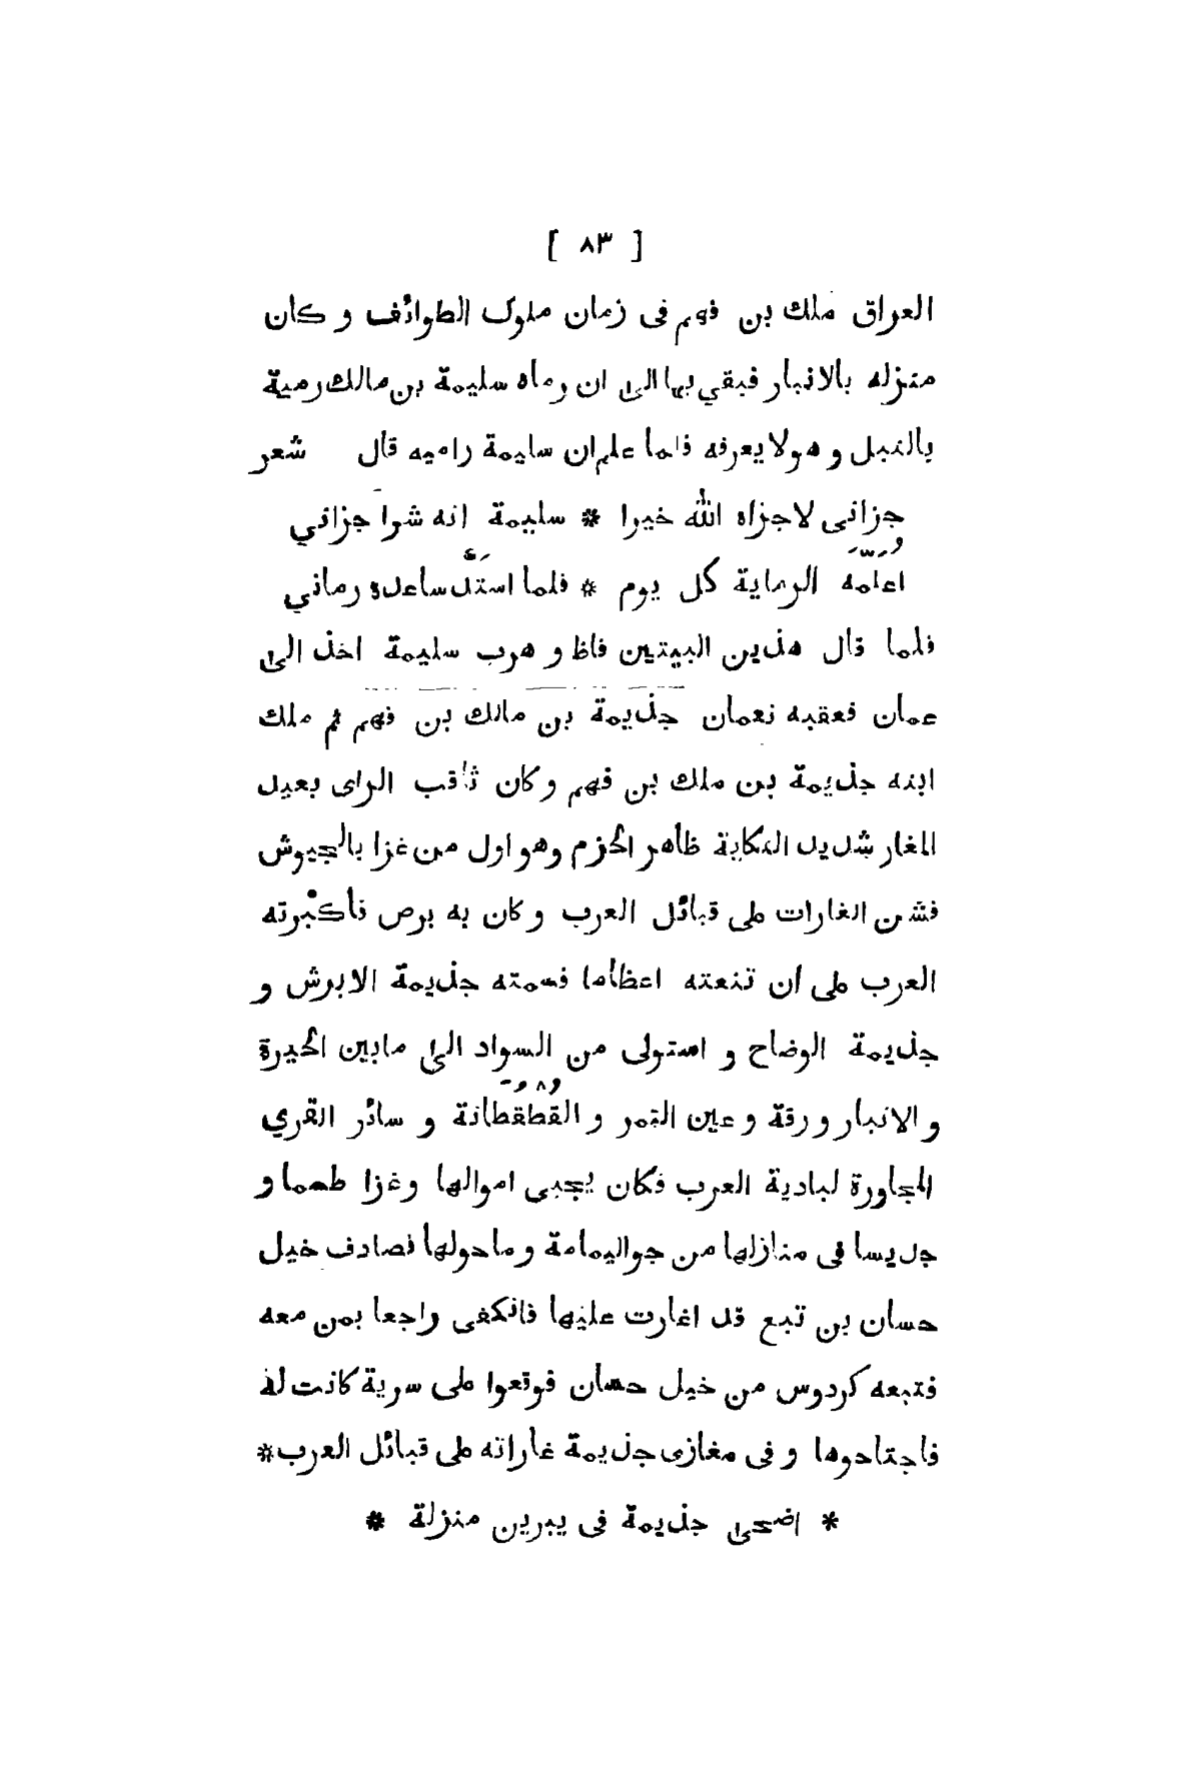 [ ٨٣ ]
العراق ملك بن فهم فى زمان ملوك الطوائف و كان
منزله بالانبار فبقي بها الى ان رماه سليمة بن مالك رمية
بالنبل و هو لا يعرفه فلما علم ان سليمة راميه قال شعر
جزانى لا جزاه الله خيرا * سليمة انه شرا جزاني
اعلمُه الرِمَايَّةَ كل يوم * فلما استَدَّ ساعده رماني
فلما قال هذين البيتين فاظ و هرب سليمة اخذ الى
عمان فعقبه نعمان جذيمة بن مالك بن فهم ثم ملك
ابنه جذيمة بن ملك بن فهم و كان ثاقب الراى بعيد
المغار شديد النكاية ظاهر الحزم وهو اول من غزا بالجيوش
فشن الغارات على قبائل العرب و كان به برص فأكبرته
العرب على ان تنعته اعظاما فسمته جذيمة الابرش و
جذيمة الوضاح و استولى من السواد الى مابين الحيرة
و الانبار و رقة و عين التمر و القُطْقُطَانة و سائر القري
المجاورة لبادية العرب فكان يجبى اموالها وغزا طسما و
جديسا فى منازلها من جو اليمامة و ما حولها فصادف خيل
حسان بن تبع قد اغارت عليها فانكفى راجعا بمن معه
فتبعه كردوس من خيل حسان فوقعوا على سرية كانت له
فاجتاحوها و فى مغازى جذيمة غاراته على قبائل العرب *
* اضحى جذيمة فى يبرين منزلة *